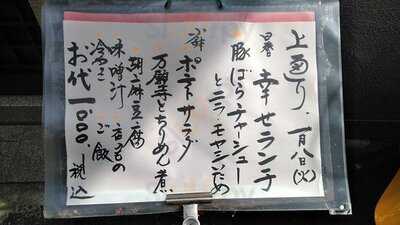 上通り 一月八日(火)
昼 幸せランチ
豚ばらチャーシュー
とニラ・モヤシいため
小鉢 ポテトサラダ
万願寺とちりめん煮
胡麻豆腐
味噌汁 香もの
冷やっこ ご飯
お代 一、〇〇〇 税込